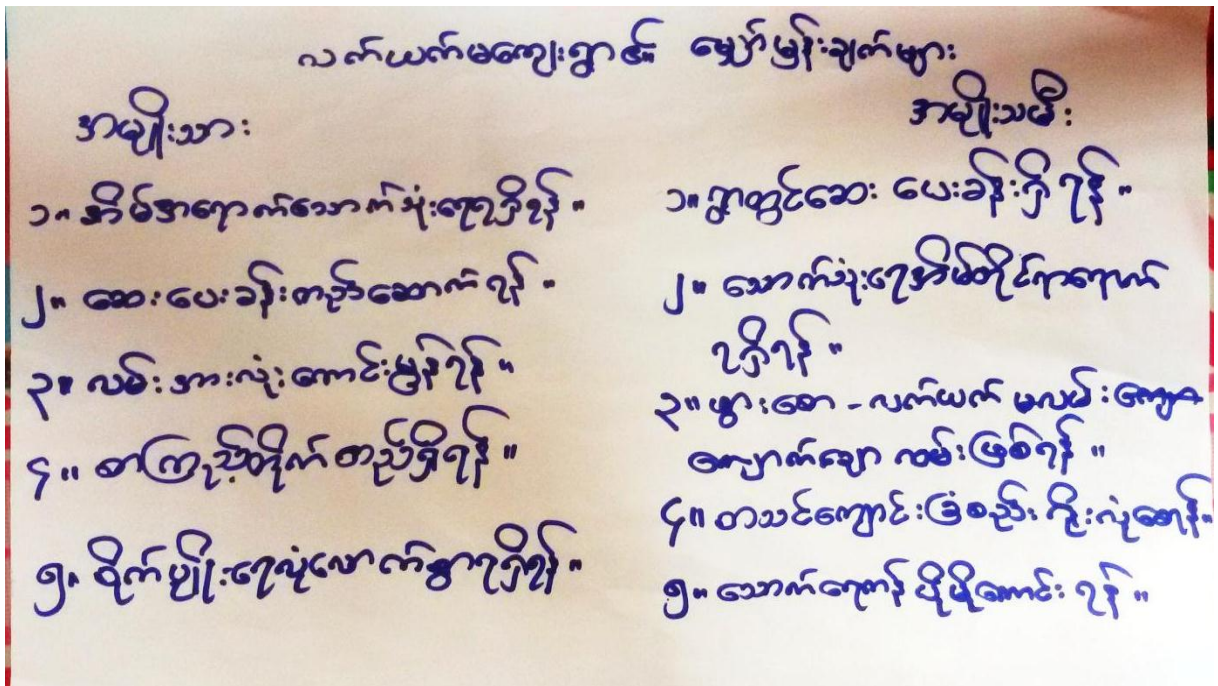 လက်ယက်မကျေးရွာ၏ မျှော်မှန်းချက်များ
အမျိုးသား
၁။ အိမ်အရောက်သောက်သုံးရေရရှိရန် ။
၂။ ဆေးပေးခန်းတည်ဆောက်ရန် ။
၃။ လမ်းအားလုံးကောင်းမွန်ရန် ။
၄။ စာကြည့်တိုက်တည်ရှိရန် ။
၅။ စိုက်ပျိုးရေလုံလောက်စွာရရှိရန် ။
အမျိုးသမီး
၁။ ရွာတွင်ဆေး ပေးခန်းရှိ ရန် ။
၂။ သောက်သုံးရေအိမ်တိုင်ရာရောက်
ရရှိရန် ။
၃။ ဖွားစော - လက်ယက် မလမ်းကျော
ကျောက်ချော လမ်းဖြစ်ရန် ။
၄။ စာသင်ကျောင်းခြံစည်း ရိုးလုံစေရန် ။
၅။ သောက်ရေကန် ပိုမိုကောင်း ရန် ။